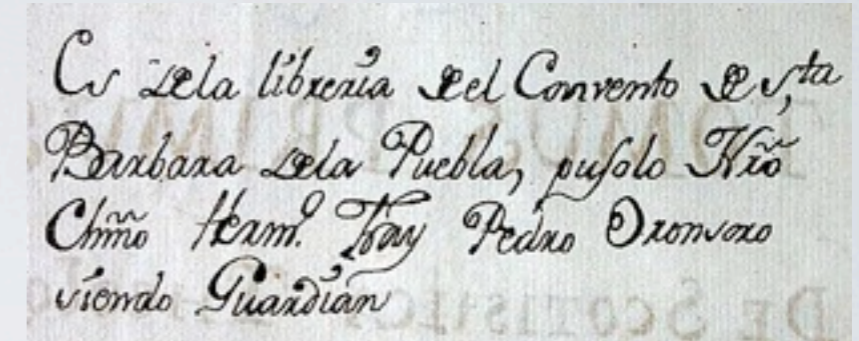 Es dela libreria del Convento de S,ta
Barbara dela Puebla, pusolo Nrõ
Chmõ Hermº. Fray Pedro Oronsoro
siendo Guardian